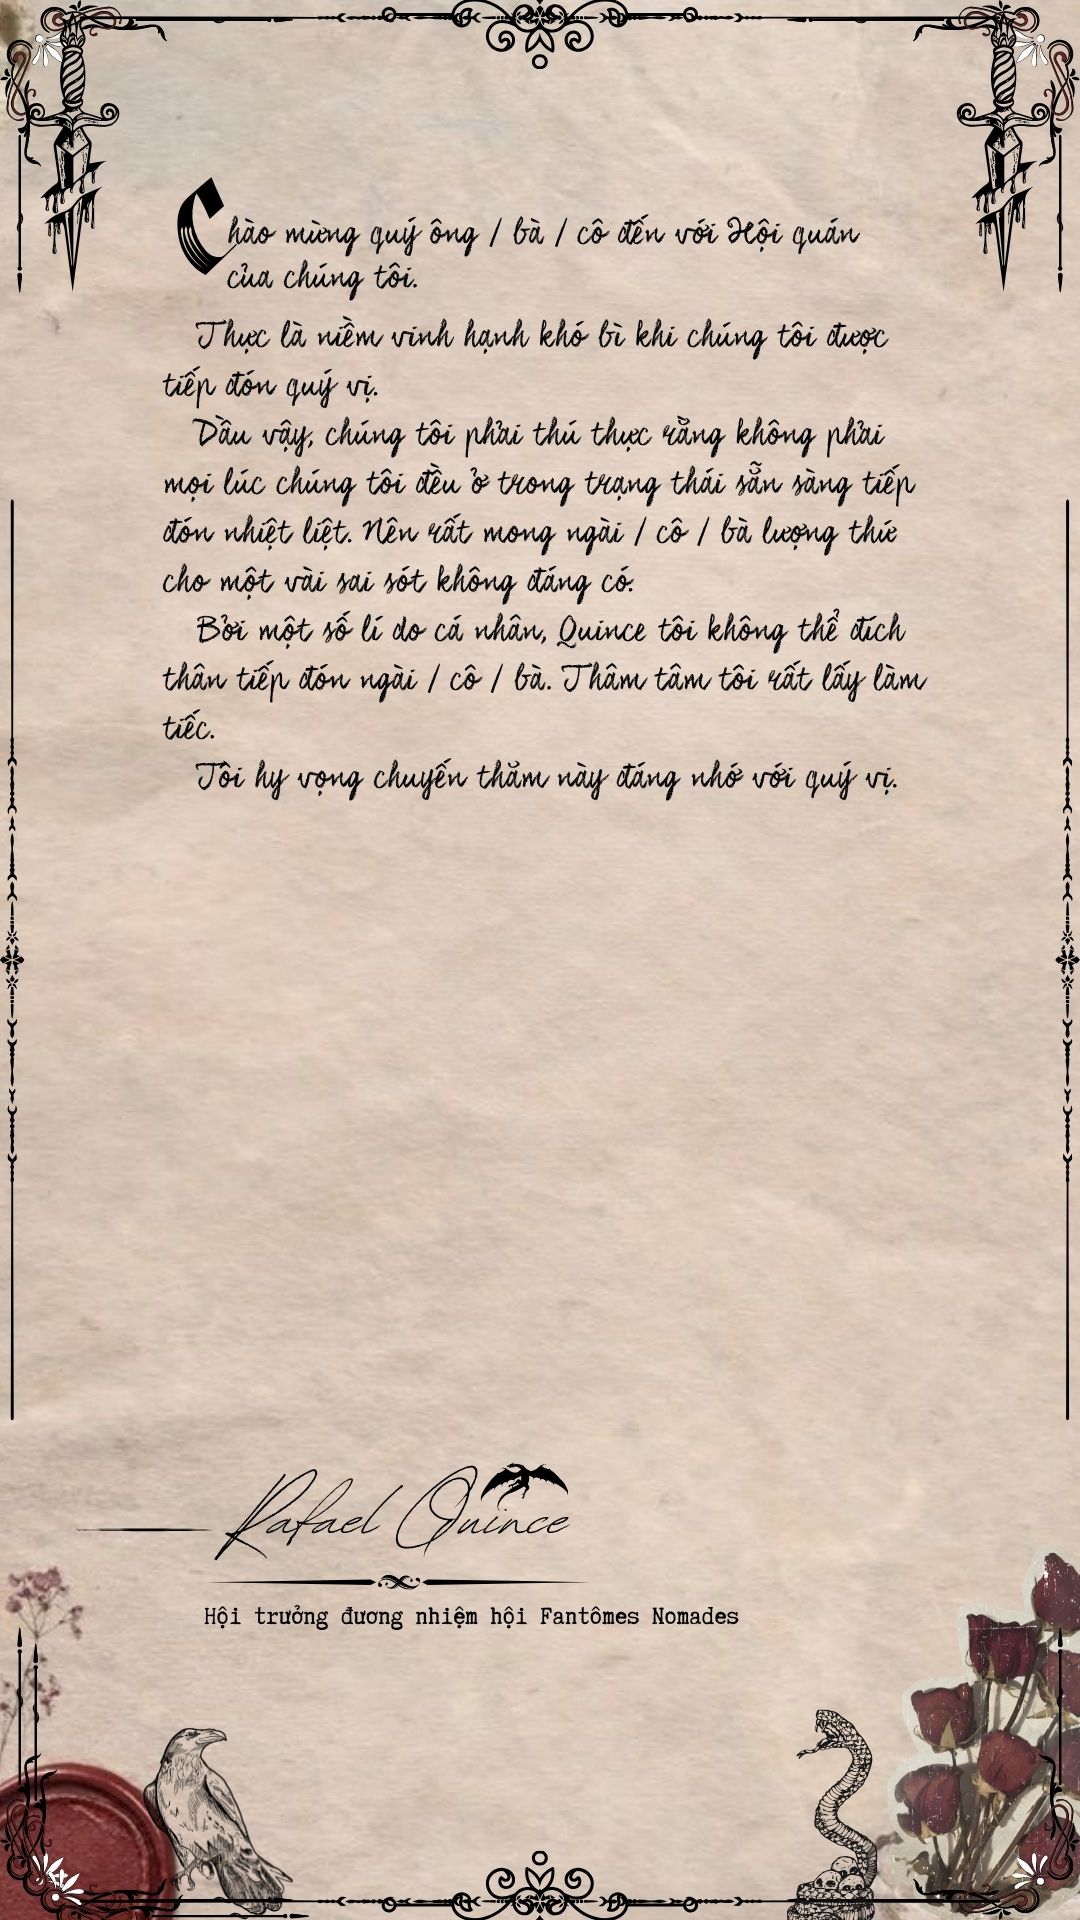 Chào mừng quý ông / bà / cô đến với Hội quán
của chúng tôi.
Thực là niềm vinh hạnh khó bì khi chúng tôi được
tiếp đón quý vị.
Dầu vậy, chúng tôi phải thú thực rằng không phải
mọi lúc chúng tôi đều ở trong trạng thái sẵn sàng tiếp
đón nhiệt liệt. Nên rất mong ngài / cô / bà lượng thứ
cho một vài sai sót không đáng có.
Bởi một số lí do cá nhân, Quince tôi không thể đích
thân tiếp đón ngài / cô / bà. Thâm tâm tôi rất lấy làm
tiếc.
Tôi hy vọng chuyến thăm này đáng nhớ với quý vị.
Rafael Quince
Hội trưởng đương nhiệm hội Fantômes Nomades